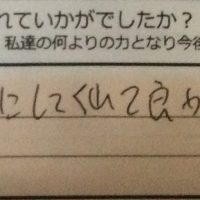 れていかがでしたか？
私達の何よりの力となり今後
にしてくれて良か